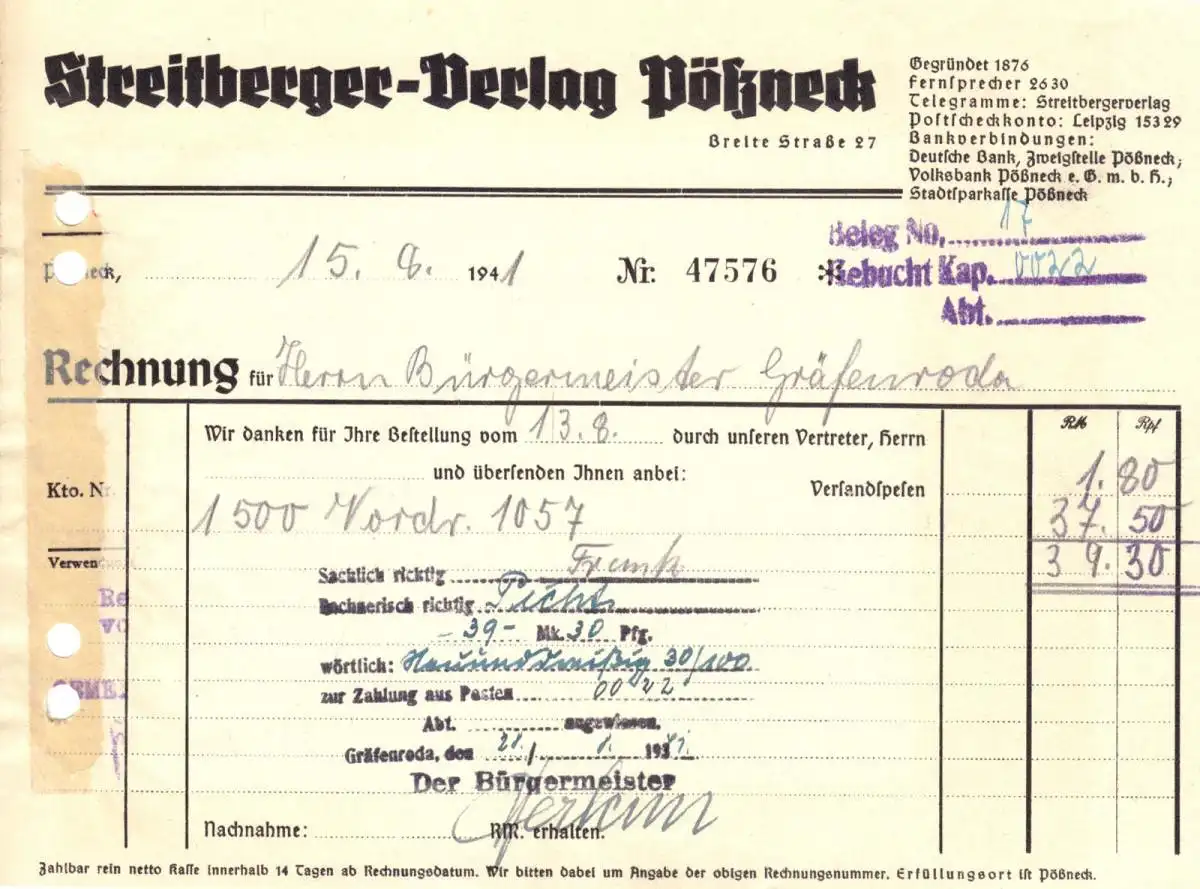 Streitberger-Verlag Pößneck
Breite Straße 27
Gegründet 1876
Fernsprecher 2630
Telegramme: Streitbergerverlag
Postscheckkonto: Leipzig 15329
Bankverbindungen:
Deutsche Bank, Zweigstelle Pößneck;
Volksbank Pößneck e. G. m. b. H.;
Stadtsparkasse Pößneck
Beleg No. 17
15. 8. 1941 Nr. 47576
Gebucht Kap. 0022
Abt.
Rechnung für Herrn Bürgermeister Gräfenroda
RM Rpf
Wir danken für Ihre Bestellung vom 13.8. durch unseren Vertreter, Herrn
und übersenden Ihnen anbei:
Kto. Nr. Versandspesen 1.80
1500 Vordr. 1057 37.50
39.30
Sachlich richtig Frank
Rechnerisch richtig
- 39 - Mk. 30 Pfg.
wörtlich: Neununddreißig 30/100
zur Zahlung aus Posten 0022
Abt. angewiesen.
Gräfenroda, den
Der Bürgermeister
Nachnahme: RM. erhalten.
Zahlbar rein netto Kasse innerhalb 14 Tagen ab Rechnungsdatum. Wir bitten dabei um Angabe der obigen Rechnungsnummer. Erfüllungsort ist Pößneck.